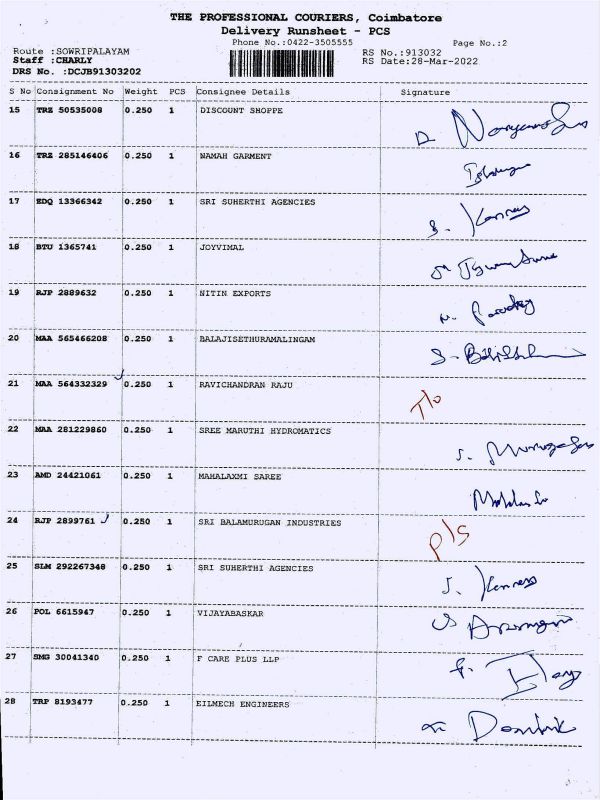 THE PROFESSIONAL COURIERS, Coimbatore
Delivery Runsheet - PCS
Phone No.:0422-3505555 Page No.:2
Route :SOWRIPALAYAM RS No.:913032
Staff :CHARLY RS Date:28-Mar-2022
DRS No. :DCJB91303202
S No Consignment No Weight PCS Consignee Details Signature
15 TRZ 50535008 0.250 1 DISCOUNT SHOPPE
16 TRZ 285146406 0.250 1 NAMAH GARMENT
17 EDQ 13366342 0.250 1 SRI SUHERTHI AGENCIES
18 BTU 1365741 0.250 1 JOYVIMAL
19 RJP 2889632 0.250 1 NITIN EXPORTS
20 MAA 565466208 0.250 1 BALAJISETHURAMALINGAM
21 MAA 564332329 0.250 1 RAVICHANDRAN RAJU T/o
22 MAA 281229860 0.250 1 SREE MARUTHI HYDROMATICS
23 AMD 24421061 0.250 1 MAHALAXMI SAREE
24 RJP 2899761 0.250 1 SRI BALAMURUGAN INDUSTRIES P/S
25 SLM 292267348 0.250 1 SRI SUHERTHI AGENCIES
26 POL 6615947 0.250 1 VIJAYABASKAR
27 SMG 30041340 0.250 1 F CARE PLUS LLP
28 TRP 8193477 0.250 1 EILMECH ENGINEERS